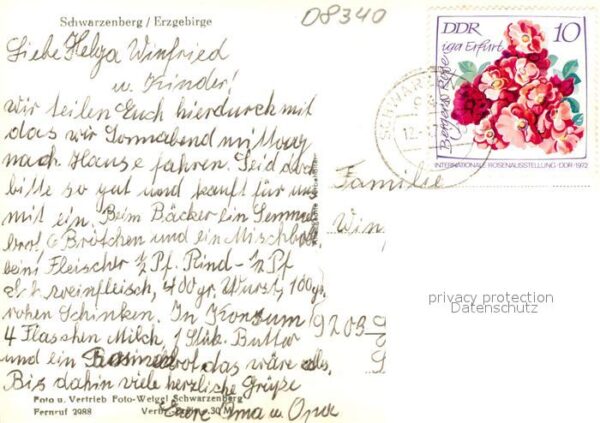 Schwarzenberg / Erzgebirge
08340
Liebe Helga Winfried
u. Kinder!
wir teilen Euch hierdurch mit
das wir Sonnabend mittag
nach Hause fahren. Seid doch
bitte so gut und kauft für uns
mit ein. Beim Bäcker ein Semmel
brot 6 Brötchen und ein Mischbrot
beim Fleischer ½ Pf. Rind - ½ Pf
Schweinfleisch, 400 gr. Wurst, 100 gr.
rohen Schinken. In Konsum
4 Flaschen Milch, 1 Stük. Butter
und ein das wäre alles.
Bis dahin viele herzliche Grüße
Eure Oma u. Opa
Foto u. Vertrieb Foto-Weigel Schwarzenberg
Fernruf 2988
DDR 10
iga Erfurt
Bergers Rose
INTERNATIONALE ROSENAUSSTELLUNG · DDR · 1972
Familie
Win
9209
privacy protection
Datenschutz